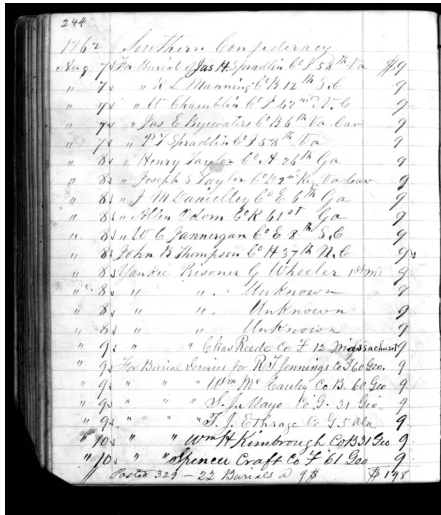 244
1862 Southern Confederacy
Aug. 7 For Burial of Jas H. Spradlin Co I 58th Va $9
" 7 " " R L Manning Co B 12th S.C 9
" 7 " " W Chamblin Co I 42nd 9
" 7 " Jas E Bywaters Co B 6th Va Cav 9
" 7 " P T Spradlin Co I 58th Va 9
" 8 " Henry Taylor Co A 26th Ga 9
" 8 " Joseph S Taylor Co 2nd Va Cav 9
" 8 " J M Co E 6th Ga 9
" 8 " Allen Odom Co K 61st Ga 9
" 8 " W C Co E 8th S.C 9
" 8 John B Thompson Co H 37th N.C 9
" 8 G Wheeler 9
" 8 " " " Unknown 9
" 8 " " Unknown 9
" 8 " " Unknown 9
" 9 " " Chas Reede Co F 12 Massachusett 9
" 9 For Burial Services for R T Jennings Co G 60 Geo. 9
" 9 " " " Wm Mc Cauley Co B. 60 Geo 9
" 9 " " " Mayo Co G. 31 Geo 9
" 9 " " " T. J. Ethrage Co G. 5 Ala 9
" 10 " " " Wm H Kimbrough Co B 31 Geo 9
" 10. " " " Spencer Craft Co F 61 Geo 9
" Posted 329 — 22 Burials a 9$ $198